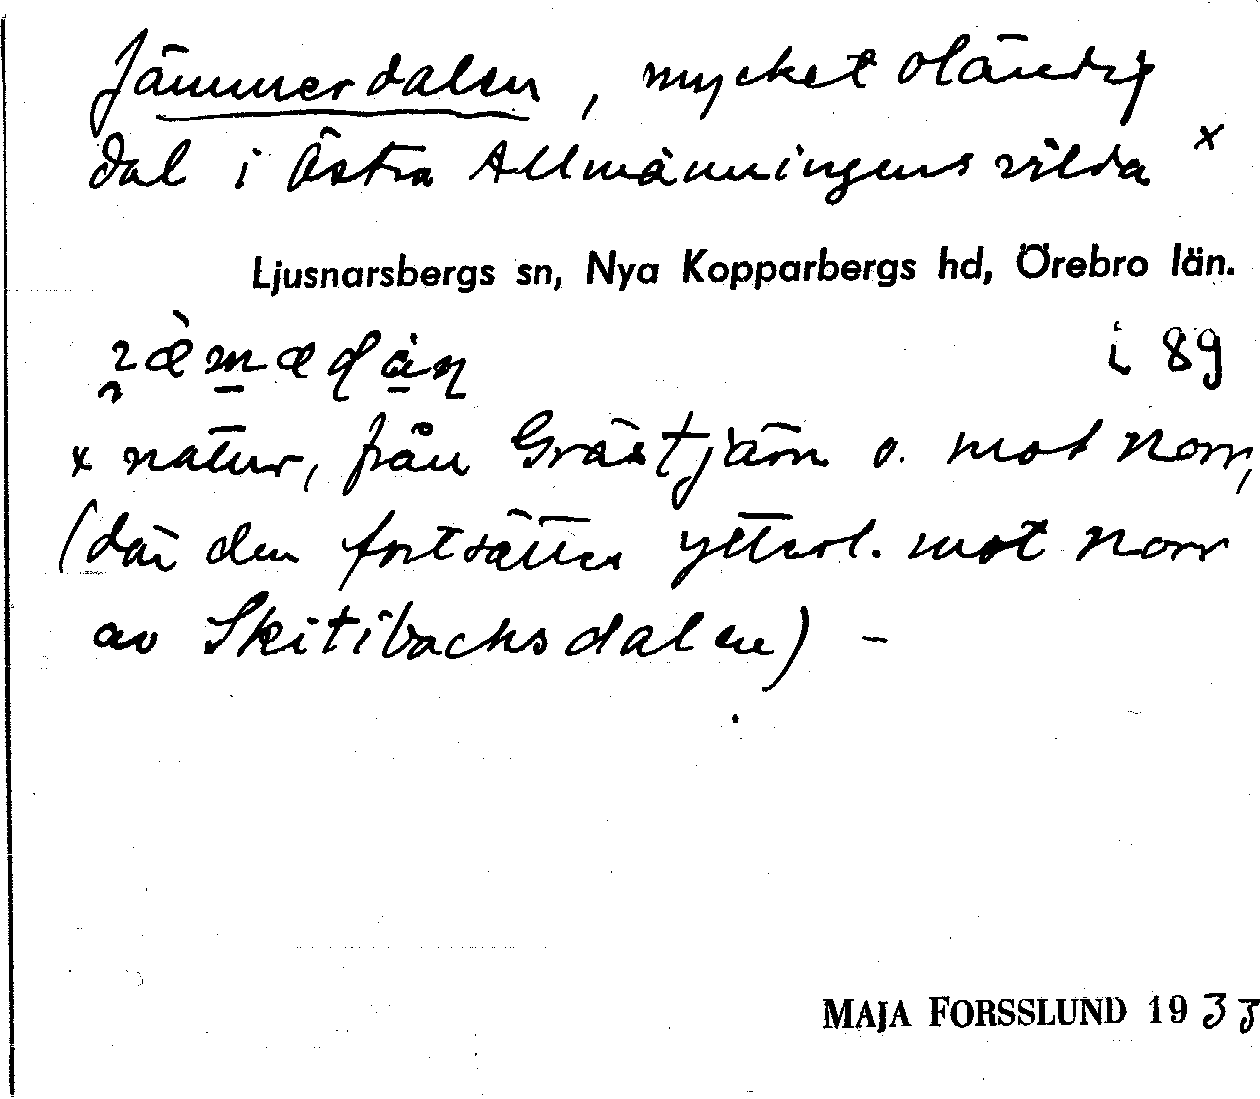 Jämmerdalen, mycket oländig
dal i Östra Allmänningens vilda x
Ljusnarsbergs sn, Nya Kopparbergs hd, Örebro län.
i 89
x natur, från Grästjärn o. mot norr,
(där den fortsättes ytterl. mot norr
av Skitibacksdalen) –
MAJA FORSSLUND 1935